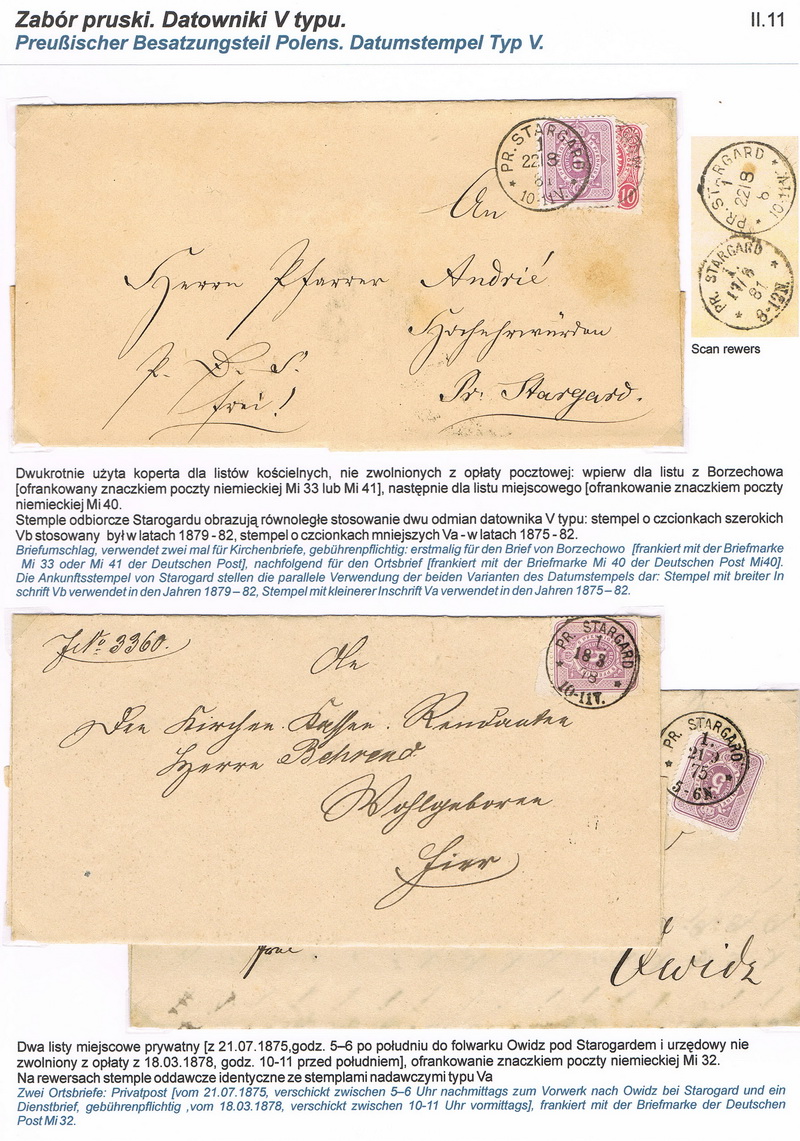 Zabór pruski. Datowniki V typu.
II.11
Preußischer Besatzungsteil Polens. Datumstempel Typ V.
PR. STARGARD
1
22/8
81
10-11V.
10
An
Herrn Pfarrer Andrié
Hochehrwürden
P. D. S.
frei!
Pr. Stargard.
PR. STARGARD
1
22/8
10-11V.
PR. STARGARD
1.
17/8
81
8-12N.
Scan rewers
Dwukrotnie użyta koperta dla listów kościelnych, nie zwolnionych z opłaty pocztowej: wpierw dla listu z Borzechowa
[ofrankowany znaczkiem poczty niemieckiej Mi 33 lub Mi 41], następnie dla listu miejscowego [ofrankowanie znaczkiem poczty
niemieckiej Mi 40.
Stemple odbiorcze Starogardu obrazują równoległe stosowanie dwu odmian datownika V typu: stempel o czcionkach szerokich
Vb stosowany był w latach 1879 - 82, stempel o czcionkach mniejszych Va - w latach 1875 - 82.
Briefumschlag, verwendet zwei mal für Kirchenbriefe, gebührenpflichtig: erstmalig für den Brief von Borzechowo [frankiert mit der Briefmarke
Mi 33 oder Mi 41 der Deutschen Post], nachfolgend für den Ortsbrief [frankiert mit der Briefmarke Mi 40 der Deutschen Post Mi40].
Die Ankunftsstempel von Starogard stellen die parallele Verwendung der beiden Varianten des Datumstempels dar: Stempel mit breiter In
schrift Vb verwendet in den Jahren 1879 – 82, Stempel mit kleinerer Inschrift Va verwendet in den Jahren 1875 – 82.
J. No 3360.
PR. STARGARD
1
18 3
78
10-11V.
An
Den Kirchen-Kassen-Rendanten
Herrn Behrend
Wohlgeboren
Hier
PR. STARGARD
1.
75
5-6N.
Owidz
Dwa listy miejscowe prywatny [z 21.07.1875,godz. 5–6 po południu do folwarku Owidz pod Starogardem i urzędowy nie
zwolniony z opłaty z 18.03.1878, godz. 10-11 przed południem], ofrankowanie znaczkiem poczty niemieckiej Mi 32.
Na rewersach stemple oddawcze identyczne ze stemplami nadawczymi typu Va
Zwei Ortsbriefe: Privatpost [vom 21.07.1875, verschickt zwischen 5–6 Uhr nachmittags zum Vorwerk nach Owidz bei Starogard und ein
Dienstbrief, gebührenpflichtig ,vom 18.03.1878, verschickt zwischen 10-11 Uhr vormittags], frankiert mit der Briefmarke der Deutschen
Post Mi 32.